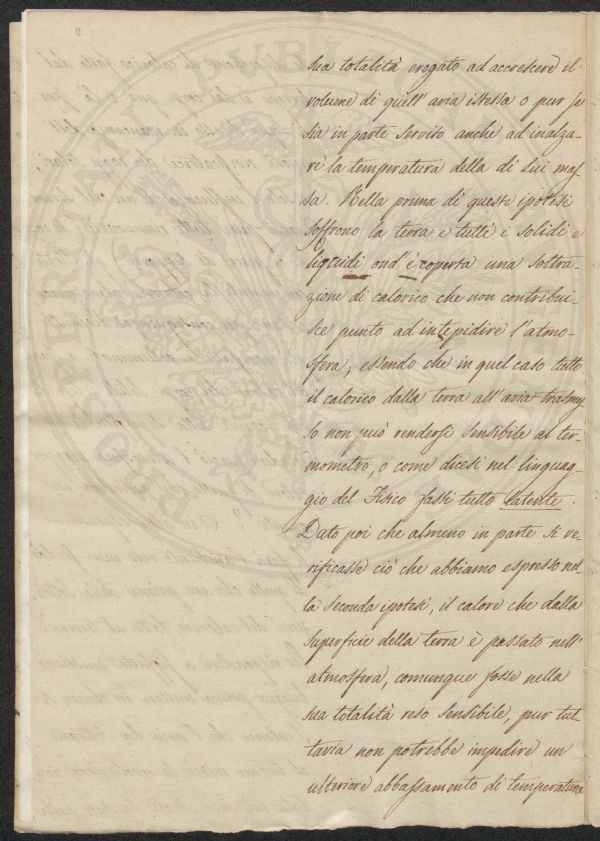 sua totalità erogato ad accrescere il
volume di quell'aria istessa o pur se
sia in parte servito anche ad inalza-
re la temperatura della di lui mas-
sa. Nella prima di queste ipotesi
soffrono la terra e tutti i solidi e
liquidi ond'è coperta una sottra-
zione di calorico che non contribui-
sce punto ad intepidire l'atmo-
sfera; essendo che in quel caso tutto
il calorico dalla terra all'aria trasmes-
so non può rendersi sensibile al ter-
mometro, o come dicesi nel linguag-
gio del Fisico fassi tutto latente.
Dato poi che almeno in parte si ve-
rificasse ciò che abbiamo espresso nel-
la seconda ipotesi, il calore che dalla
superficie della terra è passato nell'
atmosfera, comunque fosse nella
sua totalità reso sensibile, pur tut-
tavia non potrebbe impedire un
ulteriore abbassamento di temperatura